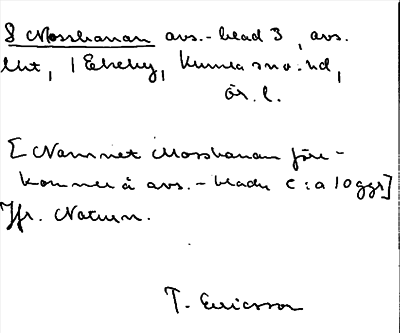 S Mossbanan avs.-blad 3, avs.
litt, 1 Ekeby, Kumla sn o. hd,
Ör. l.
[Namnet Mossbanan före-
kommer å avs.-bladen c:a 10 ggr]
Jfr. Naturn.
T. Ericsson